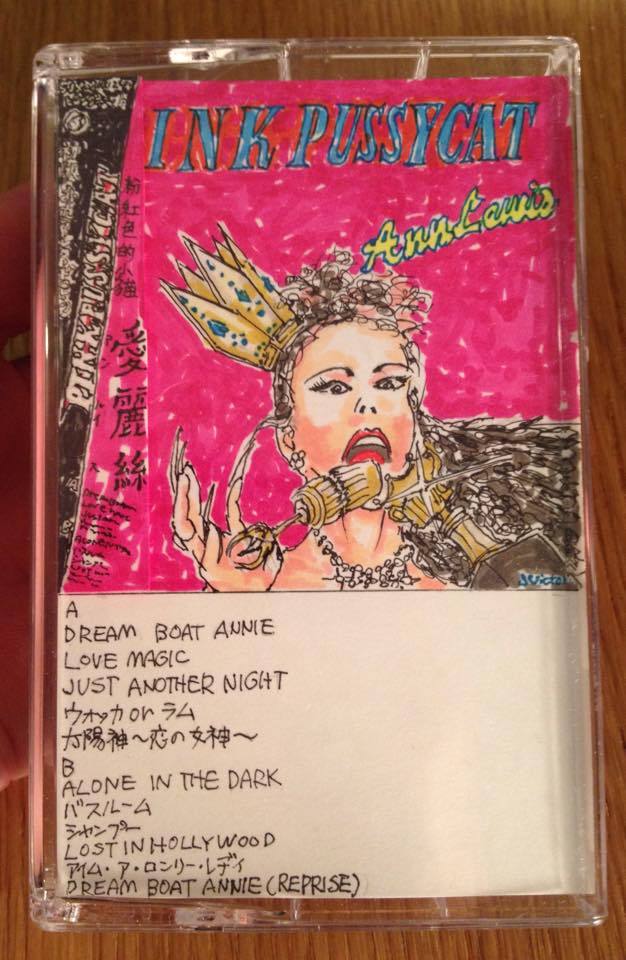 INK PUSSYCAT
Ann Lewis
PINK PUSSYCAT
粉紅色的小猫
愛麗絲
Victor
A
DREAM BOAT ANNIE
LOVE MAGIC
JUST ANOTHER NIGHT
ウォッカ or ラム
太陽神～恋の女神～
B
ALONE IN THE DARK
バスルーム
シャンプー
LOST IN HOLLYWOOD
アイム・ア・ロンリー・レディ
DREAM BOAT ANNIE (REPRISE)